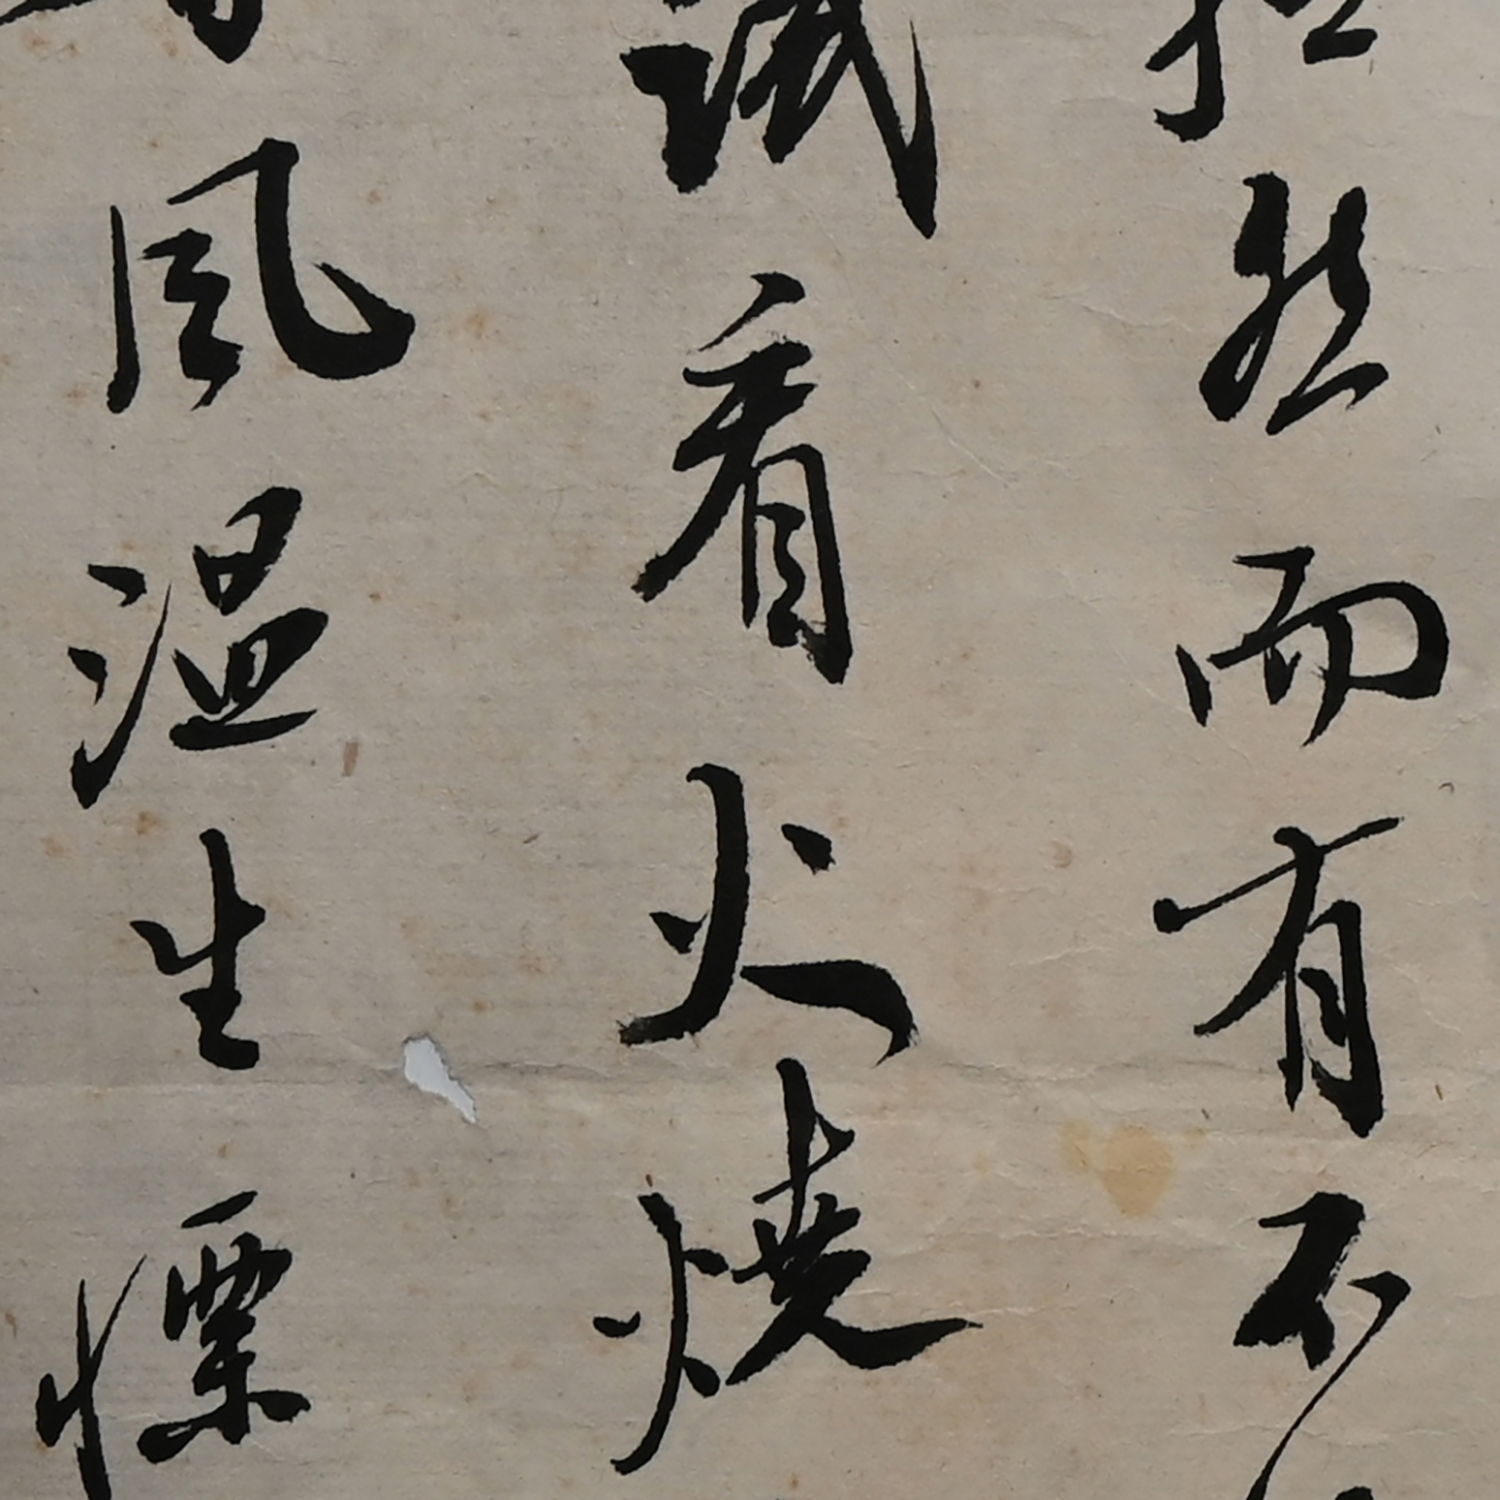 然而有不
試看火燒
風温生慄